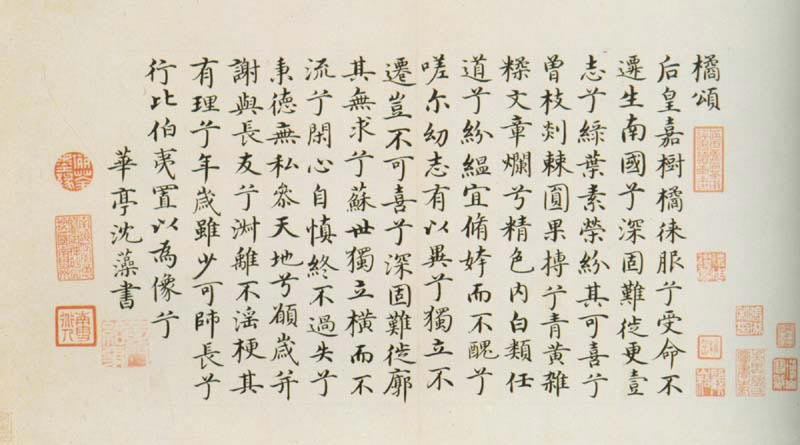 橘頌
后皇嘉樹橘徠服兮受命不
遷生南國兮深固難徙更壹
志兮綠葉素榮紛其可喜兮
曾枝剡棘圓果摶兮青黃雜
糅文章爛兮精色內白類任
道兮紛緼宜脩姱而不醜兮
嗟尔幼志有以異兮獨立不
遷豈不可喜兮深固難徙廓
其無求兮蘇世獨立橫而不
流兮閑心自慎終不過失兮
秉德無私叅天地兮願歲并
謝與長友兮淑離不淫梗其
有理兮年歲雖少可師長兮
行比伯夷置以為像兮
華亭沈藻書